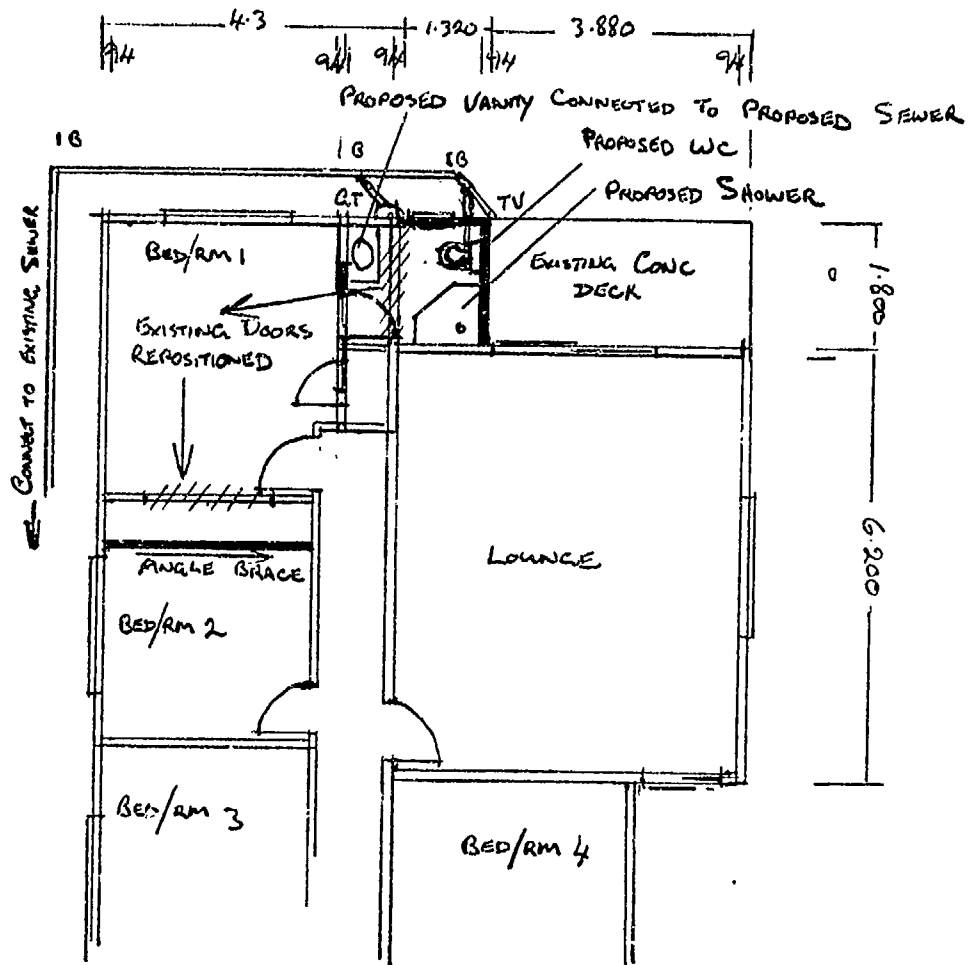 4.3
1.320
3.880
94
94
94
94
94
PROPOSED VANITY CONNECTED TO PROPOSED SEWER
PROPOSED WC
PROPOSED SHOWER
IB
IB
IB
GT
TV
BED/RM 1
EXISTING CONC
DECK
1.800
EXISTING DOORS
REPOSITIONED
CONNECT TO EXISTING SEWER
LOUNGE
6.200
ANGLE BRACE
BED/RM 2
BED/RM 3
BED/RM 4